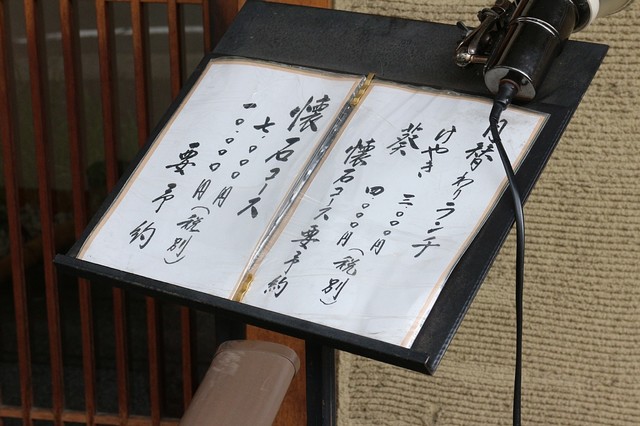 月替わりランチ
けやき 三、〇〇〇円
葵 四、〇〇〇円(税別)
懐石コース 要予約
懐石コース
七、〇〇〇円
一〇、〇〇〇円(税別)
要予約